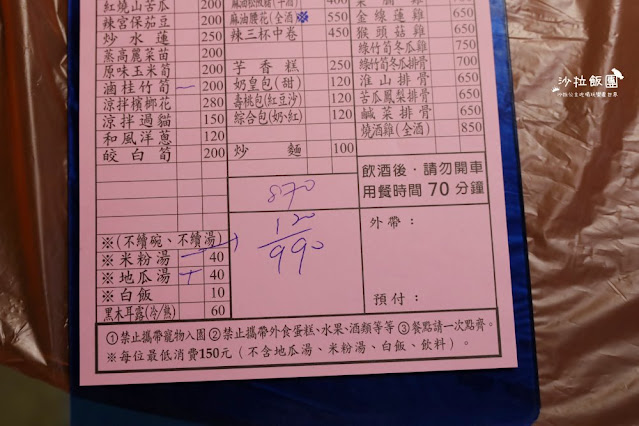 紅燒山苦瓜 200
辣宮保茄豆 200
炒水蓮 250
蒸高麗菜苗 200
原味玉米筍 200
滷桂竹筍 200
涼拌檳榔花 280
涼拌過貓 150
和風洋蔥 120
皎白筍 200
400
麻油腰花(全酒)※ 550
辣三杯中卷 450
芋香糕 250
奶皇包(甜) 120
壽桃包(紅豆沙) 120
綜合包(奶、紅) 120
炒麵 100
650
金線蓮雞 650
猴頭菇雞 650
綠竹筍冬瓜雞 750
綠竹筍冬瓜排骨 700
淮山排骨 650
苦瓜鳳梨排骨 650
鹹菜排骨 650
燒酒雞(全酒) 850
870
120
990
飲酒後·請勿開車
用餐時間70分鐘
外帶：
預付：
※(不續碗、不續湯)
※米粉湯 40
※地瓜湯 40
※白飯 10
黑木耳露(冷/熱) 60
①禁止攜帶寵物入園②禁止攜帶外食蛋糕、水果、酒類等等③餐點請一次點齊。
※每位最低消費150元（不含地瓜湯、米粉湯、白飯、飲料）。
沙拉飯團